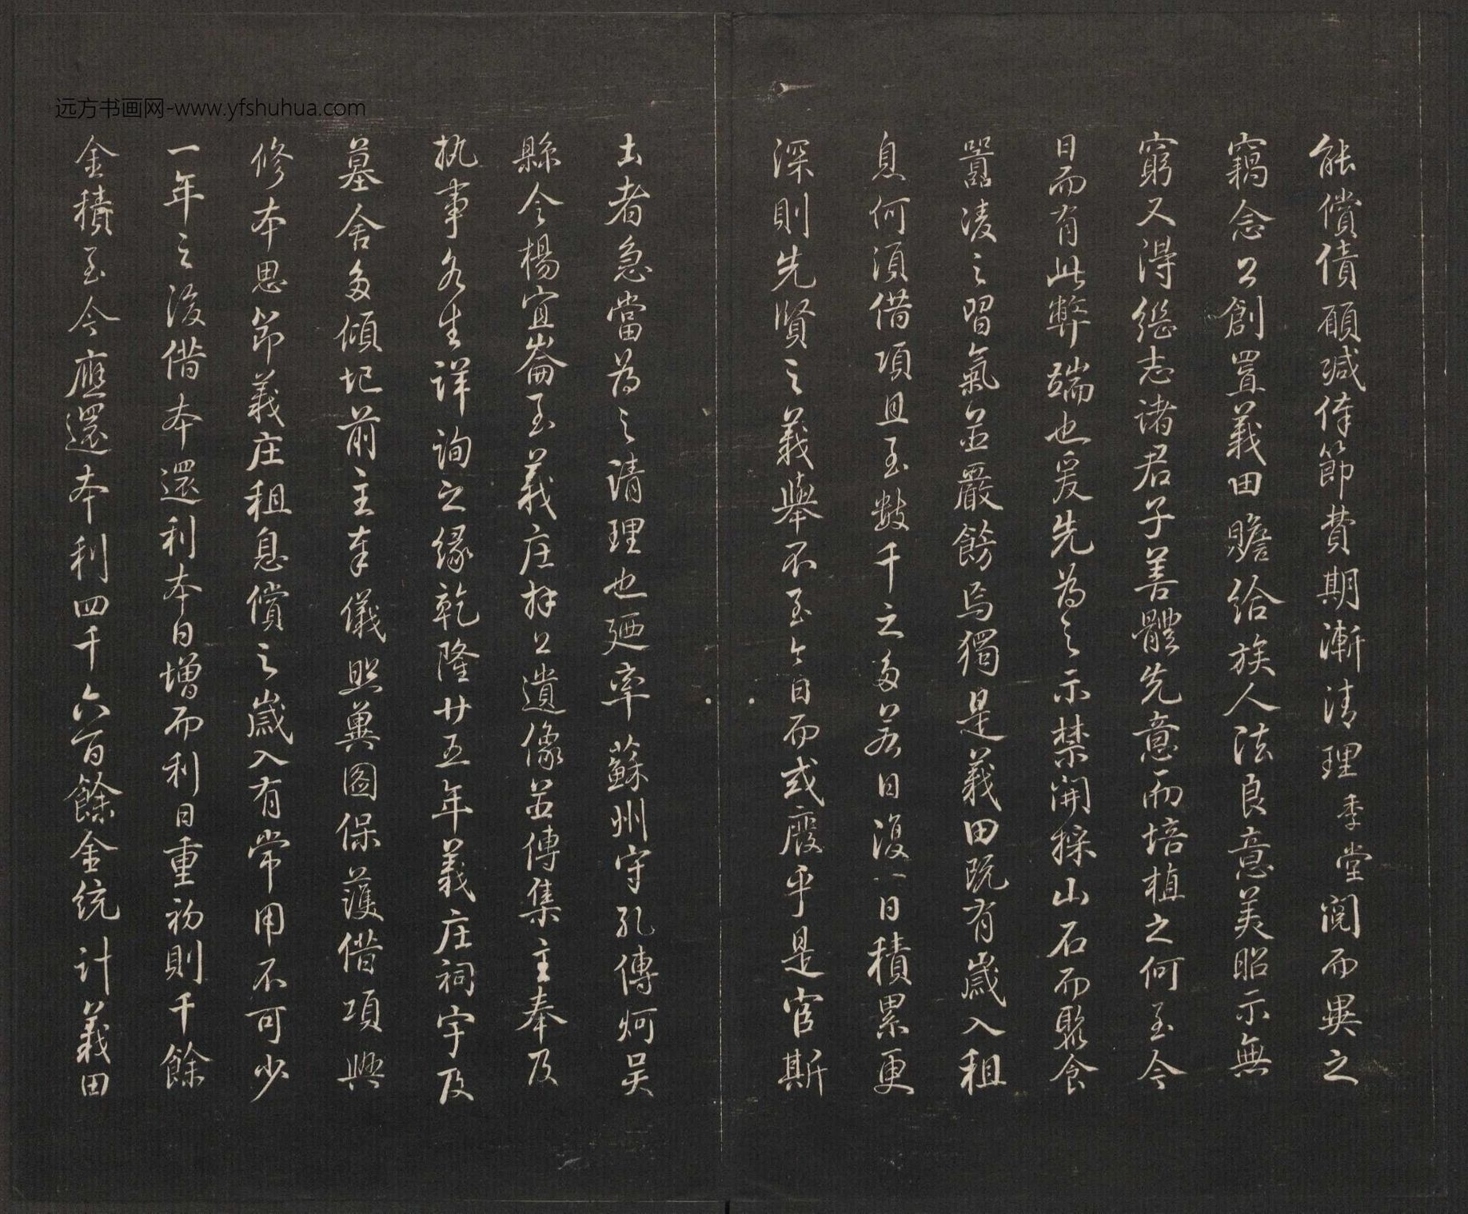 能償債願減俸節費期漸清理季堂閱而異之
竊念公創置義田贍給族人法良意美昭示無
窮又得繼志諸君子善體先意而培植之何至今
日而有此弊端也爰先為之示禁開採山石而聚食
囂凌之習氣並嚴飭焉獨是義田既有歲入租
息何須借項且至數千之多若日復一日積累更
深則先賢之義舉不至今日而或廢乎是官斯
土者急當為之請理也廼率蘇州守孔傳炣吳
縣令楊宜崙至義庄拜公遺像並傳集主奉及
執事各生詳詢之緣乾隆廿五年義庄祠宇及
墓舍多傾圮前主奉儀照冀圖保護借項興
修本思節義庄租息償之歲入有常用不可少
一年之後借本還利本日增而利日重初則千餘
金積至今應還本利四千六百餘金統計義田
远方书画网-www.yfshuhua.com